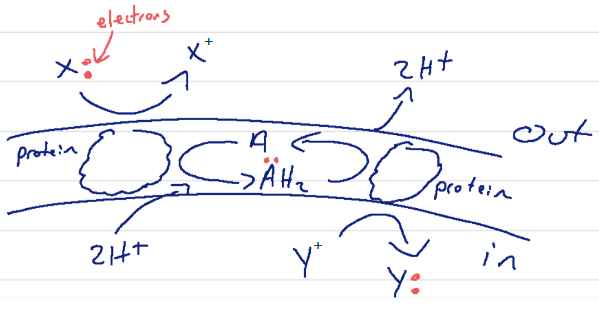 electrons
X: X⁺
2H⁺
Out
protein A
ÄH₂ protein
2H⁺ Y⁺ in
Y: